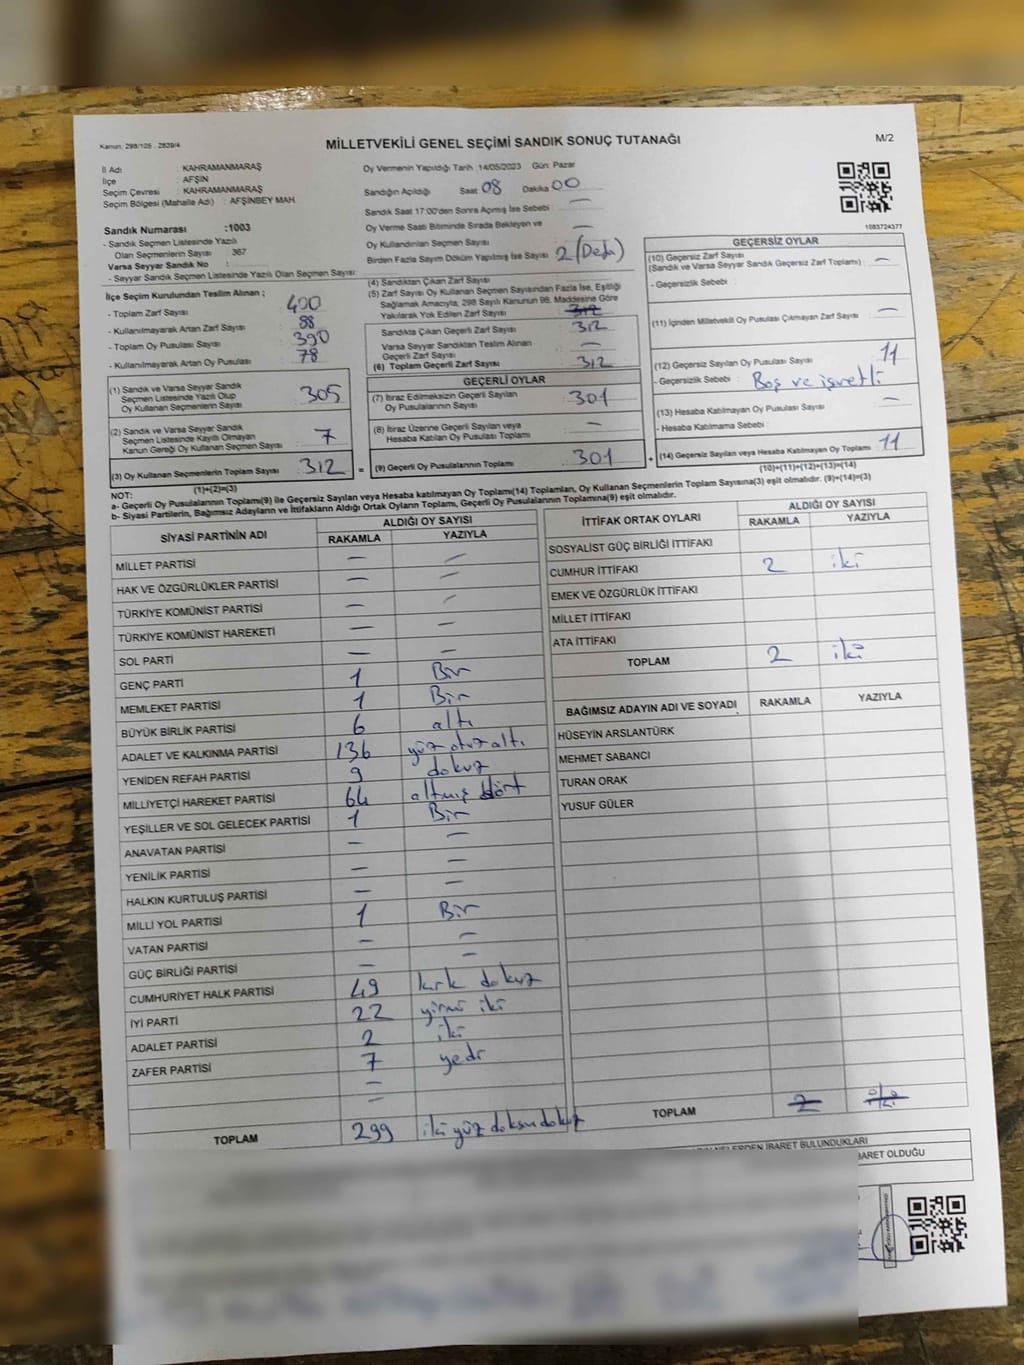 Kanun, 298/105 , 2839/4
MİLLETVEKİLİ GENEL SEÇİMİ SANDIK SONUÇ TUTANAĞI
M/2
İl Adı : KAHRAMANMARAŞ
İlçe : AFŞİN
Seçim Çevresi : KAHRAMANMARAŞ
Seçim Bölgesi (Mahalle Adı) : AFŞİNBEY MAH.
Oy Vermenin Yapıldığı Tarih : 14/05/2023 Gün: Pazar
Sandığın Açıldığı Saat 08 Dakika 00
Sandık Saat 17:00'den Sonra Açılmış İse Sebebi : —
Oy Verme Saati Bitiminde Sırada Bekleyen ve
Oy Kullandırılan Seçmen Sayısı —
Birden Fazla Sayım Döküm Yapılmış İse Sayısı : 2 (Defa)
1083724377
Sandık Numarası :1003
- Sandık Seçmen Listesinde Yazılı
Olan Seçmenlerin Sayısı : 367
Varsa Seyyar Sandık No :
- Seyyar Sandık Seçmen Listesinde Yazılı Olan Seçmen Sayısı:
İlçe Seçim Kurulundan Teslim Alınan ;
- Toplam Zarf Sayısı : 400
- Kullanılmayarak Artan Zarf Sayısı : 88
- Toplam Oy Pusulası Sayısı : 390
- Kullanılmayarak Artan Oy Pusulası : 78
(1) Sandık ve Varsa Seyyar Sandık
Seçmen Listesinde Yazılı Olup
Oy Kullanan Seçmenlerin Sayısı : 305
(2) Sandık ve Varsa Seyyar Sandık
Seçmen Listesinde Kayıtlı Olmayan
Kanun Gereği Oy Kullanan Seçmen Sayısı : 7
(3) Oy Kullanan Seçmenlerin Toplam Sayısı : 312
(1)+(2)=(3)
(4) Sandıktan Çıkan Zarf Sayısı :
(5) Zarf Sayısı Oy Kullanan Seçmen Sayısından Fazla İse, Eşitliği
Sağlamak Amacıyla, 298 Sayılı Kanunun 98. Maddesine Göre
Yakılarak Yok Edilen Zarf Sayısı : 312
Sandıkta Çıkan Geçerli Zarf Sayısı : 312
Varsa Seyyar Sandıktan Teslim Alınan
Geçerli Zarf Sayısı : —
(6) Toplam Geçerli Zarf Sayısı : 312
GEÇERLİ OYLAR
(7) İtiraz Edilmeksizin Geçerli Sayılan
Oy Pusulalarının Sayısı : 301
(8) İtiraz Üzerine Geçerli Sayılan veya
Hesaba Katılan Oy Pusulası Toplamı : —
= (9) Geçerli Oy Pusulalarının Toplamı : 301
GEÇERSİZ OYLAR
(10) Geçersiz Zarf Sayısı
(Sandık ve Varsa Seyyar Sandık Geçersiz Zarf Toplamı) : —
- Geçersizlik Sebebi :
(11) İçinden Milletvekili Oy Pusulası Çıkmayan Zarf Sayısı : —
(12) Geçersiz Sayılan Oy Pusulası Sayısı : 11
- Geçersizlik Sebebi : Boş ve işaretli
(13) Hesaba Katılmayan Oy Pusulası Sayısı : —
- Hesaba Katılmama Sebebi :
+ (14) Geçersiz Sayılan veya Hesaba Katılmayan Oy Toplamı : 11
(10)+(11)+(12)+(13)=(14)
NOT:
a- Geçerli Oy Pusulalarının Toplamı(9) ile Geçersiz Sayılan veya Hesaba katılmayan Oy Toplamı(14) Toplamları, Oy Kullanan Seçmenlerin Toplam Sayısına(3) eşit olmalıdır. (9)+(14)=(3)
b- Siyasi Partilerin, Bağımsız Adayların ve İttifakların Aldığı Ortak Oyların Toplamı, Geçerli Oy Pusulalarının Toplamına(9) eşit olmalıdır.
SİYASİ PARTİNİN ADI
ALDIĞI OY SAYISI
RAKAMLA YAZIYLA
MİLLET PARTİSİ — —
HAK VE ÖZGÜRLÜKLER PARTİSİ — —
TÜRKİYE KOMÜNİST PARTİSİ — —
TÜRKİYE KOMÜNİST HAREKETİ —
SOL PARTİ — —
GENÇ PARTİ 1 Bir
MEMLEKET PARTİSİ 1 Bir
BÜYÜK BİRLİK PARTİSİ 6 altı
ADALET VE KALKINMA PARTİSİ 136 yüz otuz altı
YENİDEN REFAH PARTİSİ 9 dokuz
MİLLİYETÇİ HAREKET PARTİSİ 64 altmış dört
YEŞİLLER VE SOL GELECEK PARTİSİ 1 Bir
ANAVATAN PARTİSİ — —
YENİLİK PARTİSİ — —
HALKIN KURTULUŞ PARTİSİ — —
MİLLİ YOL PARTİSİ 1 Bir
VATAN PARTİSİ — —
GÜÇ BİRLİĞİ PARTİSİ — —
CUMHURİYET HALK PARTİSİ 49 kırk dokuz
İYİ PARTİ 22 yirmi iki
ADALET PARTİSİ 2 iki
ZAFER PARTİSİ 7 yedi
—
—
TOPLAM 299 iki yüz doksan dokuz
İTTİFAK ORTAK OYLARI
ALDIĞI OY SAYISI
RAKAMLA YAZIYLA
SOSYALİST GÜÇ BİRLİĞİ İTTİFAKI
CUMHUR İTTİFAKI 2 iki
EMEK VE ÖZGÜRLÜK İTTİFAKI
MİLLET İTTİFAKI
ATA İTTİFAKI
TOPLAM 2 iki
BAĞIMSIZ ADAYIN ADI VE SOYADI RAKAMLA YAZIYLA
HÜSEYİN ARSLANTÜRK
MEHMET SABANCI
TURAN ORAK
YUSUF GÜLER
TOPLAM 2 iki
İBARET BULUNDUKLARI
OLDUĞU